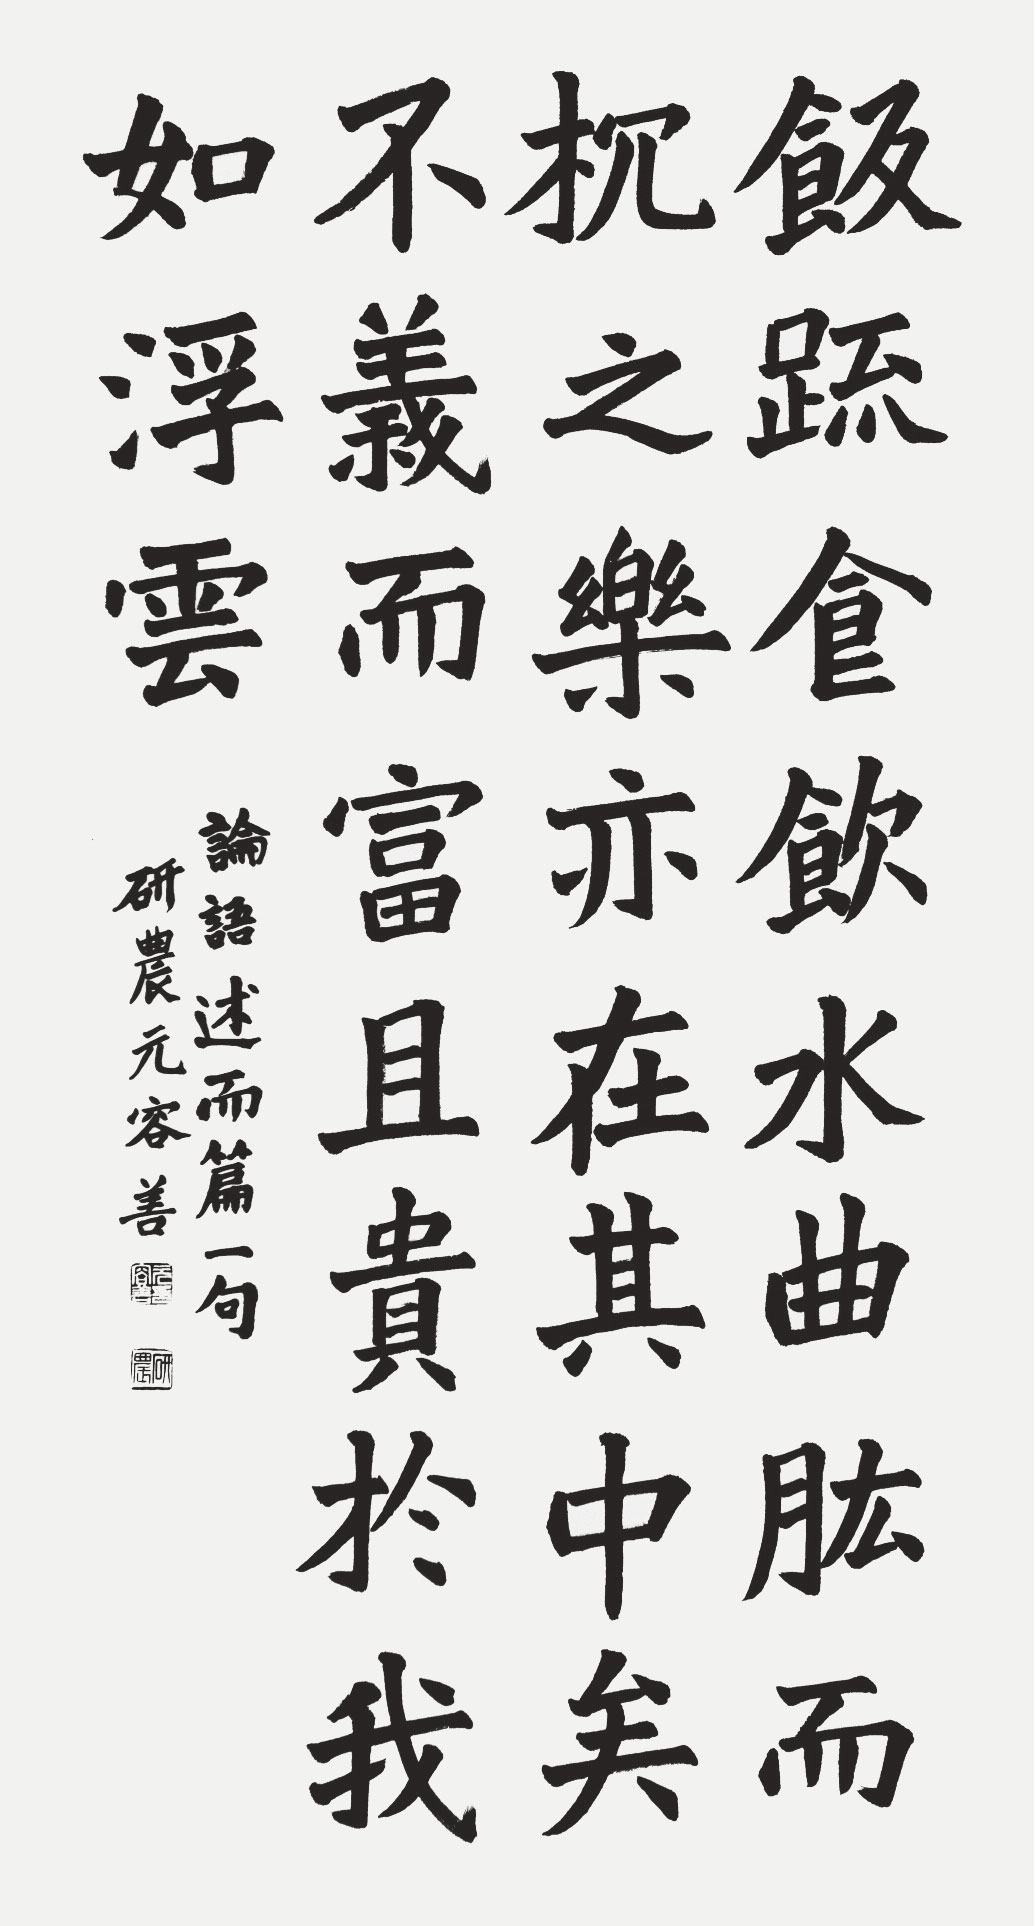 飯疏食飮水曲肱而
枕之樂亦在其中矣
不義而富且貴於我
如浮雲
論語述而篇一句
硏農元容善
元容善
硏農